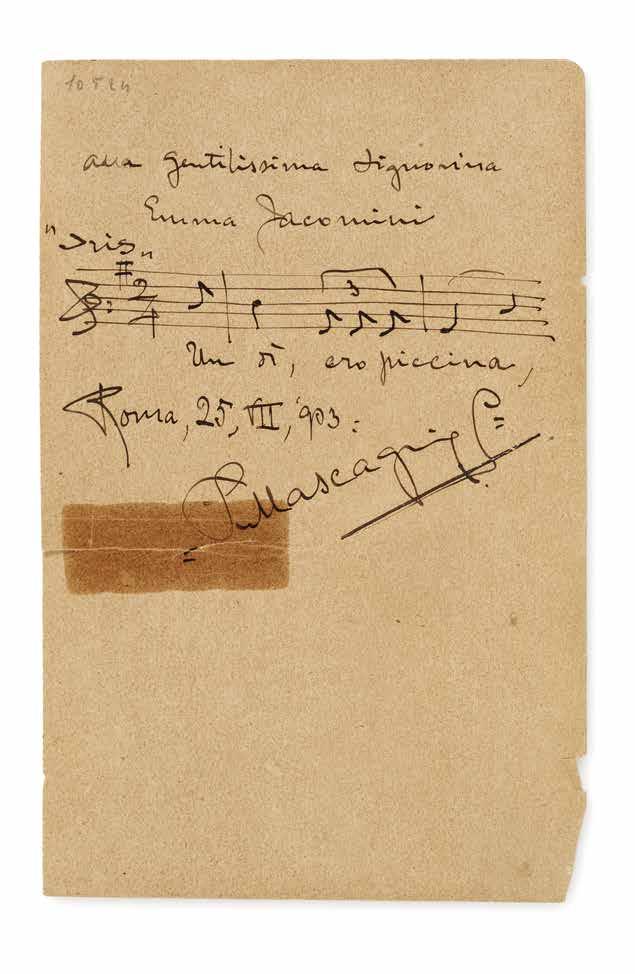 10524
alla gentilissima Signorina
Emma Jacomini
"Iris"
2
4
3
Un dì, ero piccina,
Roma, 25, VII, 903.
P. Mascagni